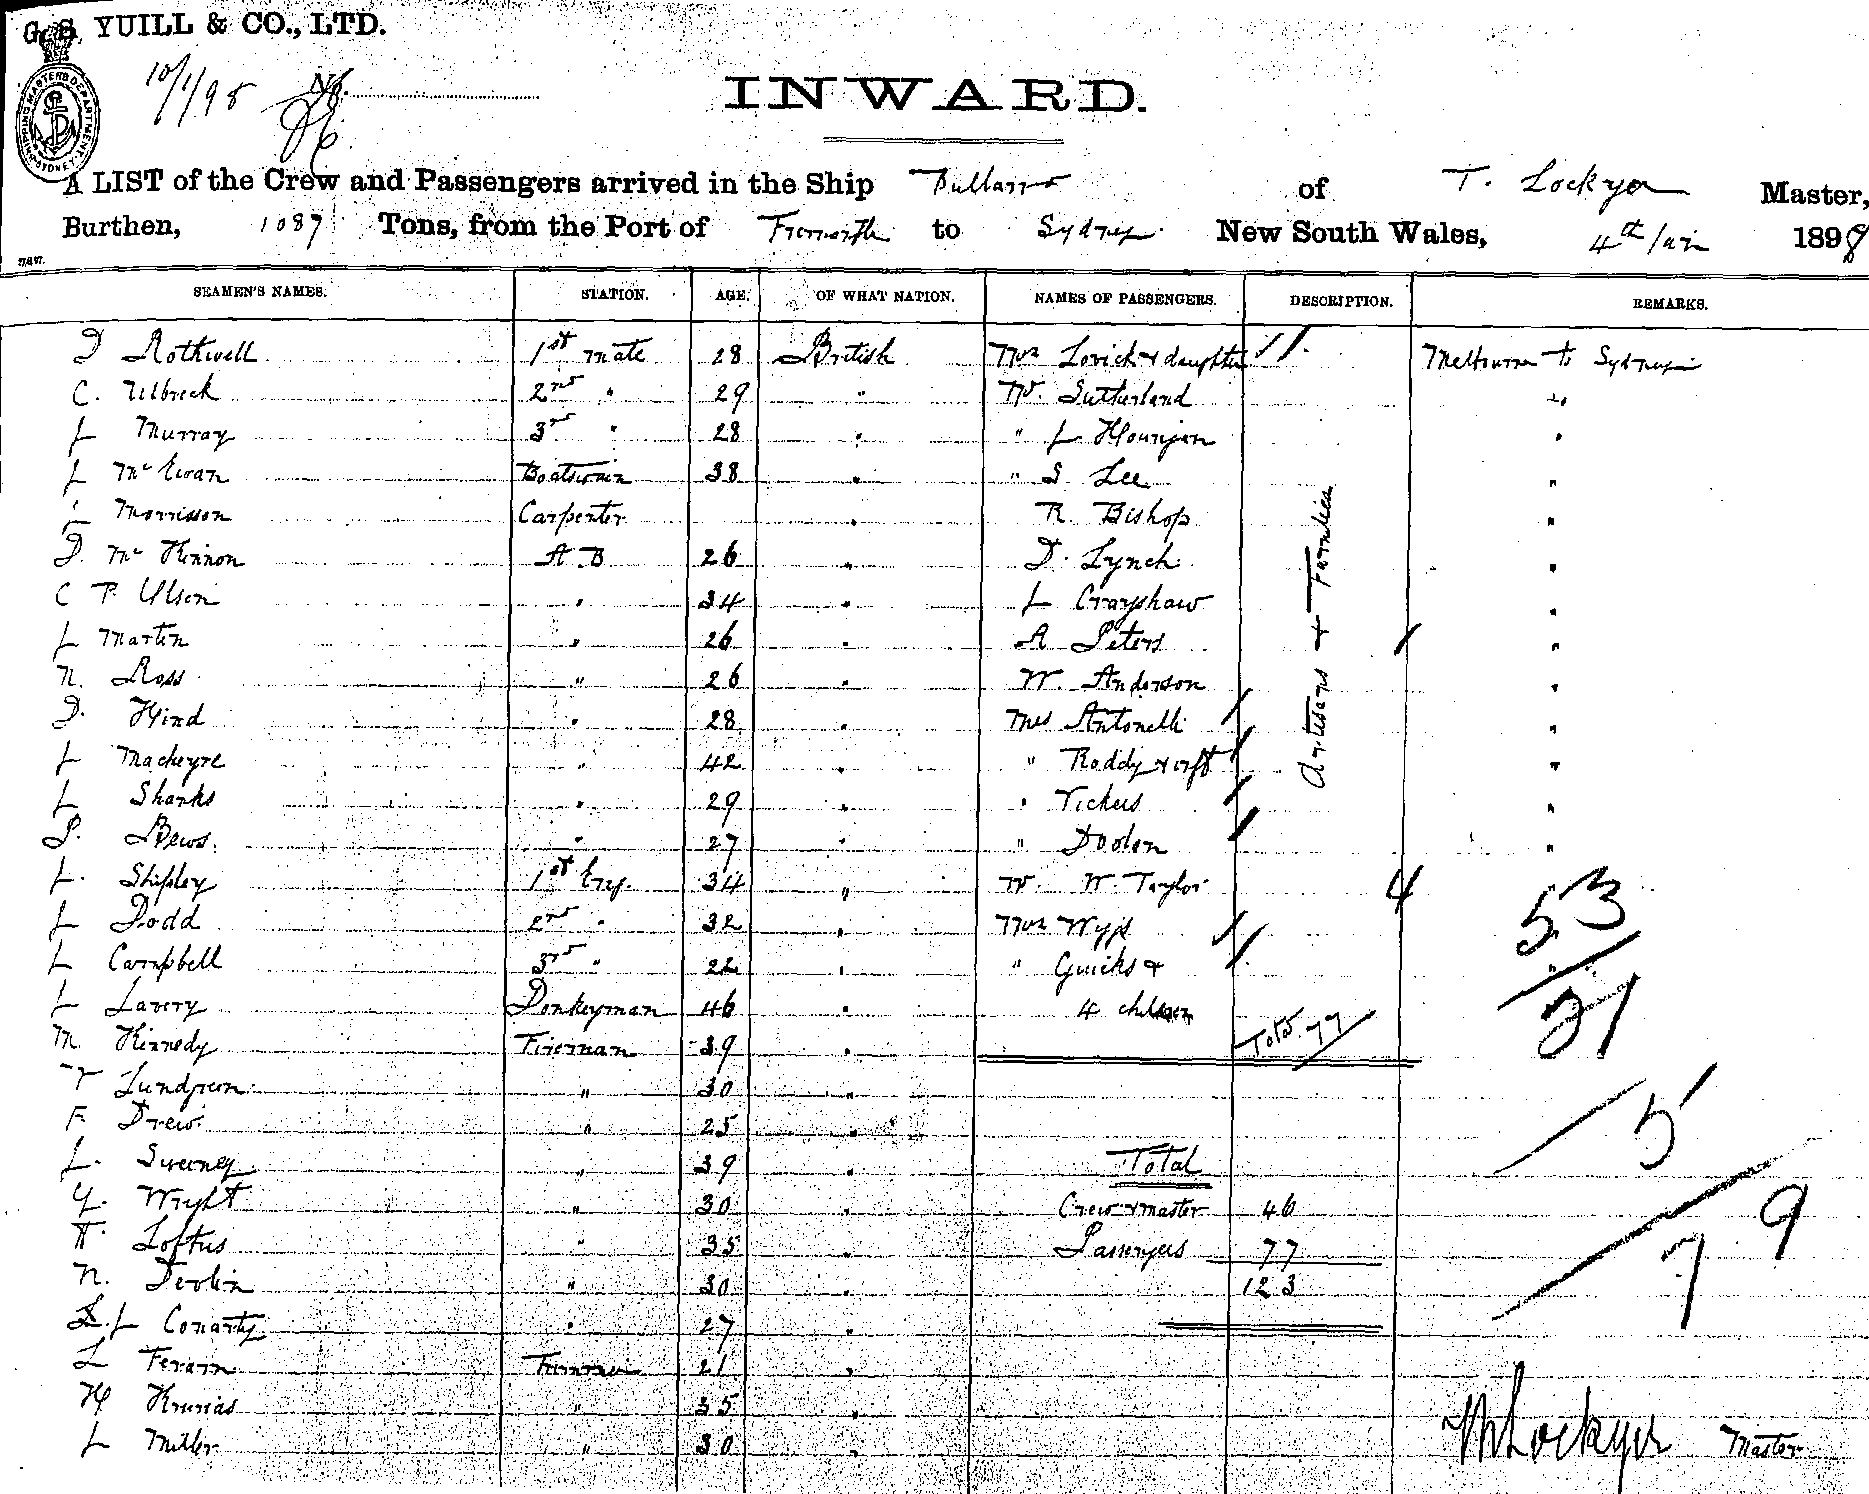 G. S. YUILL & CO., LTD.
10/1/98 No.
SHIPPING MASTER'S DEPARTMENT SYDNEY
INWARD.
A LIST of the Crew and Passengers arrived in the Ship Bullarra of T. Lockyer Master,
Burthen, 1087 Tons, from the Port of Fremantle to Sydney New South Wales, 4th Jan 1898
SEAMEN'S NAMES. STATION. AGE. OF WHAT NATION. NAMES OF PASSENGERS. DESCRIPTION. REMARKS.
D Rothwell 1st mate 28 British Mrs Lorick & daughter Melbourne to Sydney
C. Ulbrick 2nd " 29 " Mr. Sutherland "
J Murray 3rd " 28 " " J Hounjen "
J McEwan Boatswain 38 " " S Lee "
Morrisson Carpenter " R. Bishop "
D. McKinnon A.B 26 " D. Lynch "
C P. Olsen " 34 " J Crayshaw "
J Martin " 26 " A Peters "
N. Ross " 26 " W. Anderson "
D. Hind " 28 " Mrs Antonelli "
J Mackeyre " 42 " " Roddy & inft "
J Shanks " 29 " " Vickers "
P. Bews. " 27 " " Doolen "
Artisans & Families
J. Shipley 1st Eng. 34 " Mr. W. Taylor 4
J Dodd 2nd " 32 " Mrs 53
J Campbell 3rd " 22 " " Quicks &
J Lavery Donkeyman 46 " 4 children 31
M. Kennedy Fireman 39 " Total 77
Lundgren " 30 "
F. Drew " 25 " 5
J. Sweeney " 39 " Total
G. Wright " 30 " Crew & master 46 9
H. Loftus " 35 " Passengers 77 7
N. Devlin " 30 " 123
J Coriarty " 27 "
J Trimmer 21 "
H " 35 "
J Miller " 30 " Lockyer Master